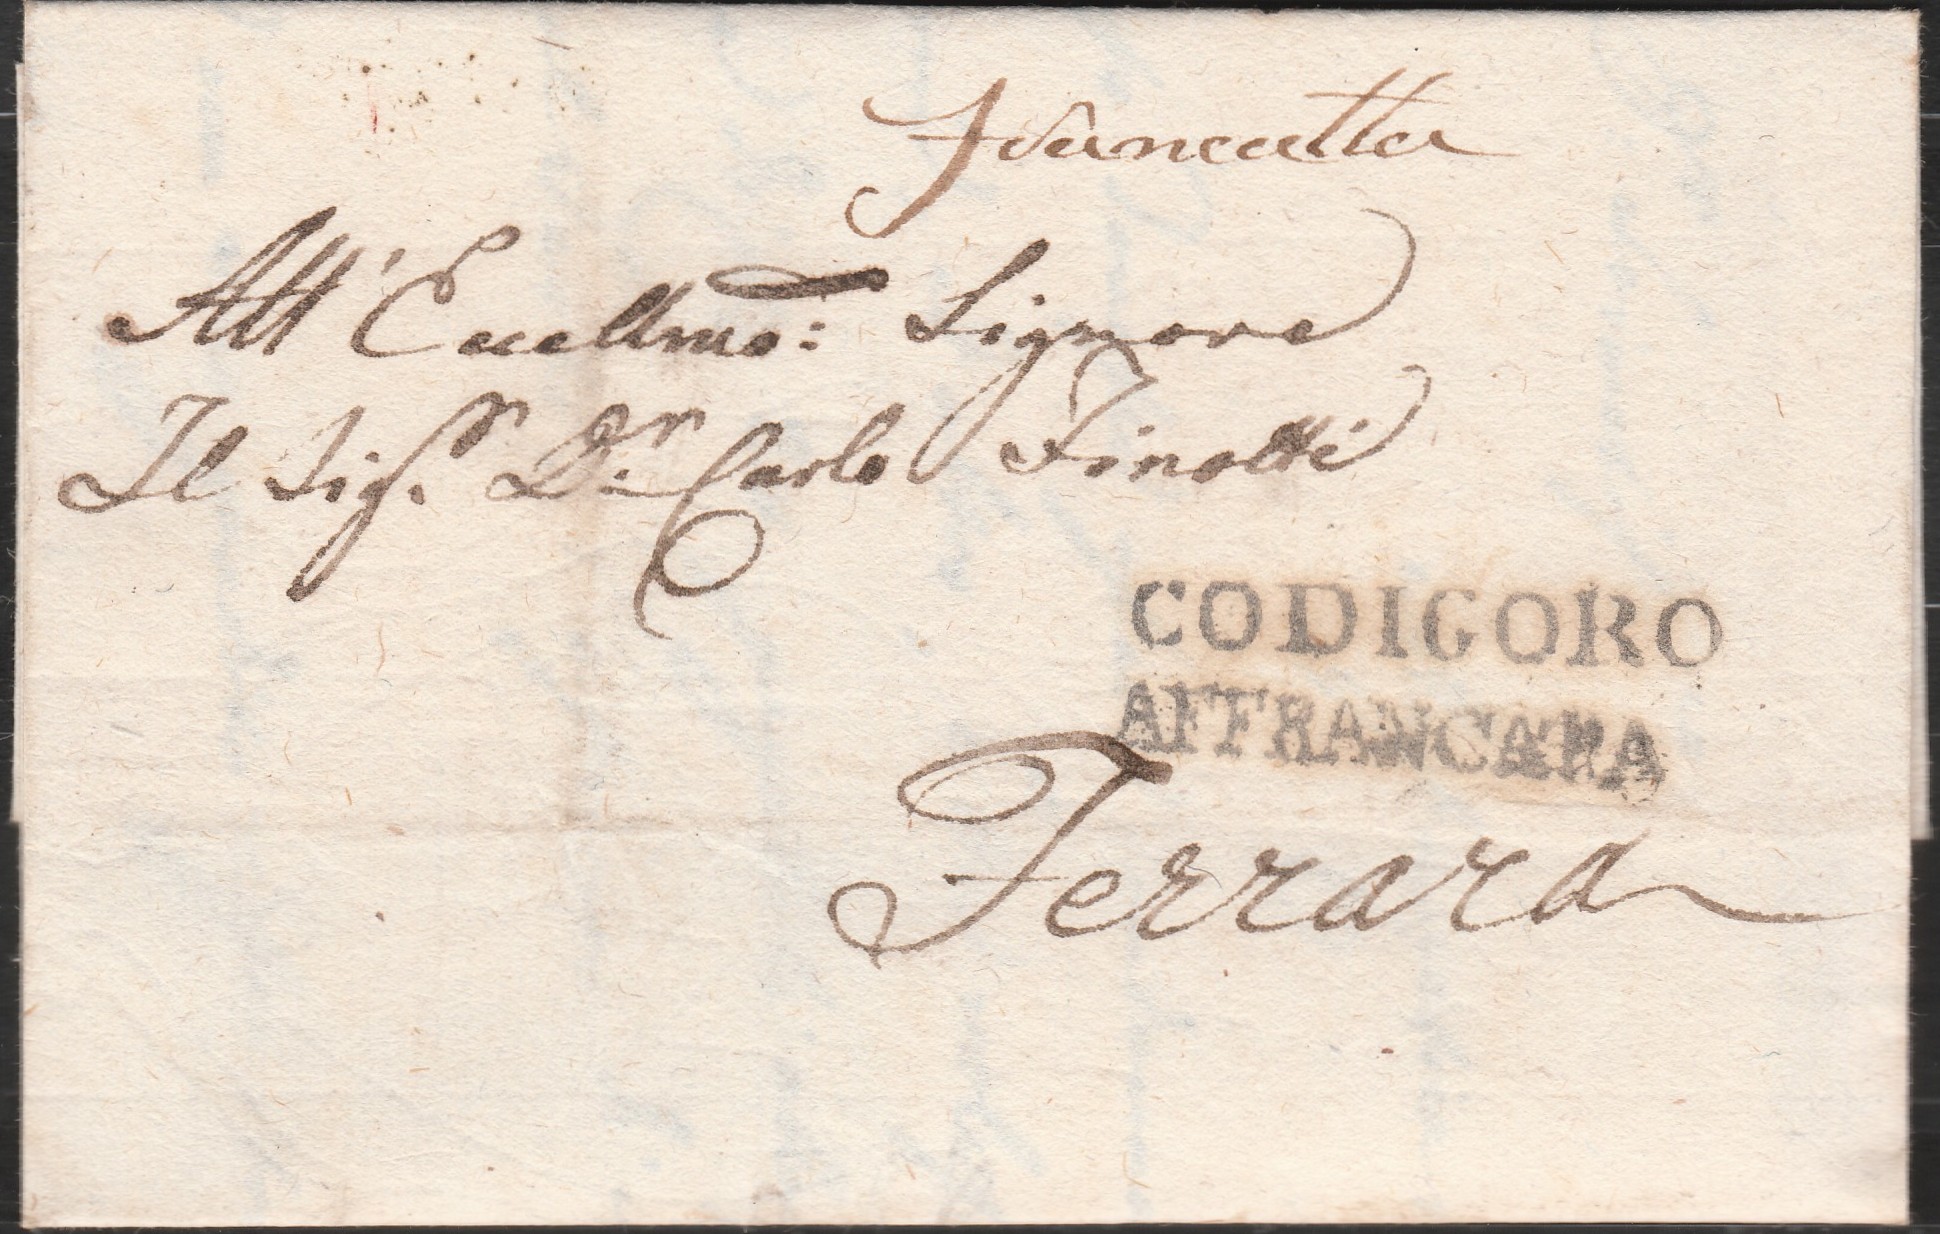 Francatta
All' Eccellmo: Signore
Il Sigr. Dr. Carlo Finotti
CODIGORO
AFFRANCATA
Ferrara